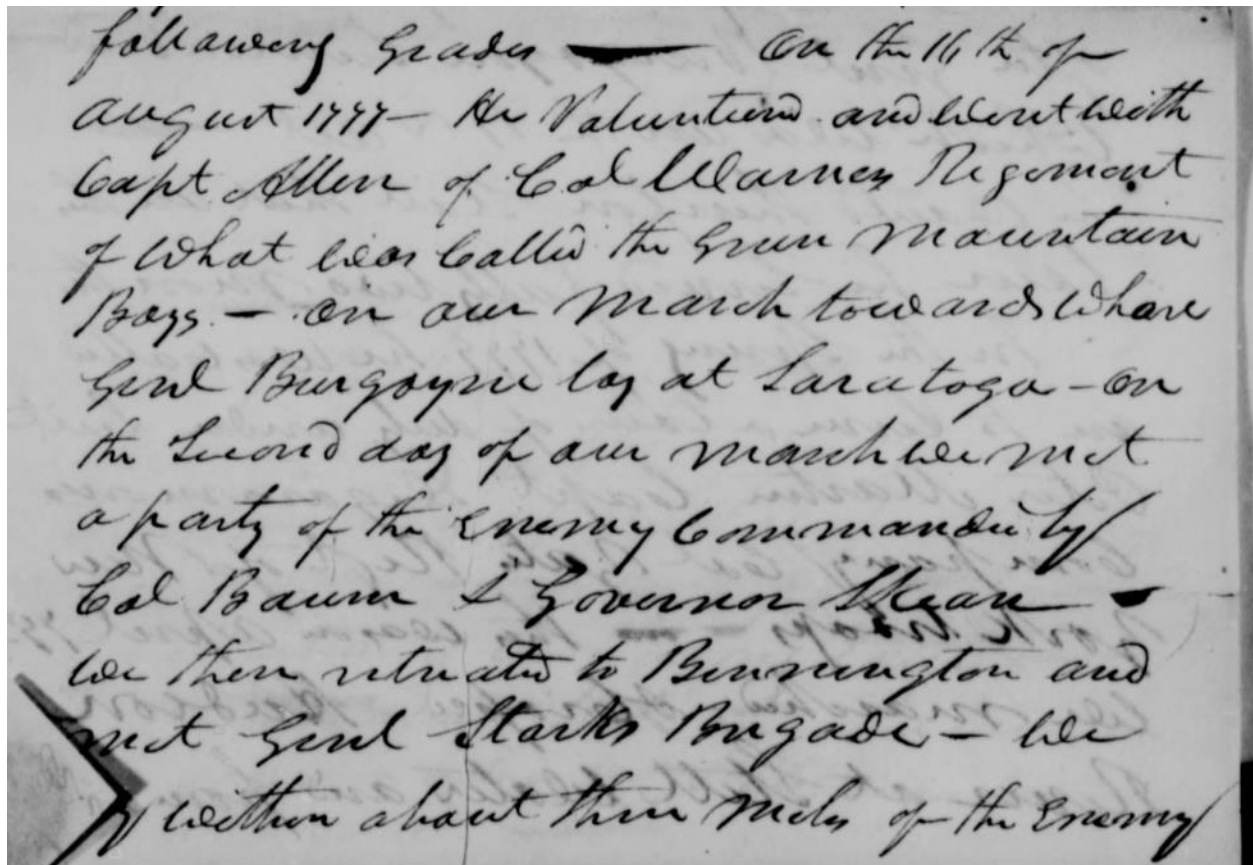 following Grades — On the 16th of
August 1777 — He Volunteered and Went with
Capt Allen of Col Warners Regement
of What was Called the Green Mountain
Boys. — On our March towards Whare
Genl Burgoyne lay at Saratoga — On
the Second day of our March we met
a party of the Enemy Commanded by
Col Baum & Governor Skean —
we then retreated to Bennington and
met Genl Starks Brigade — We
within about three Miles of the Enemy